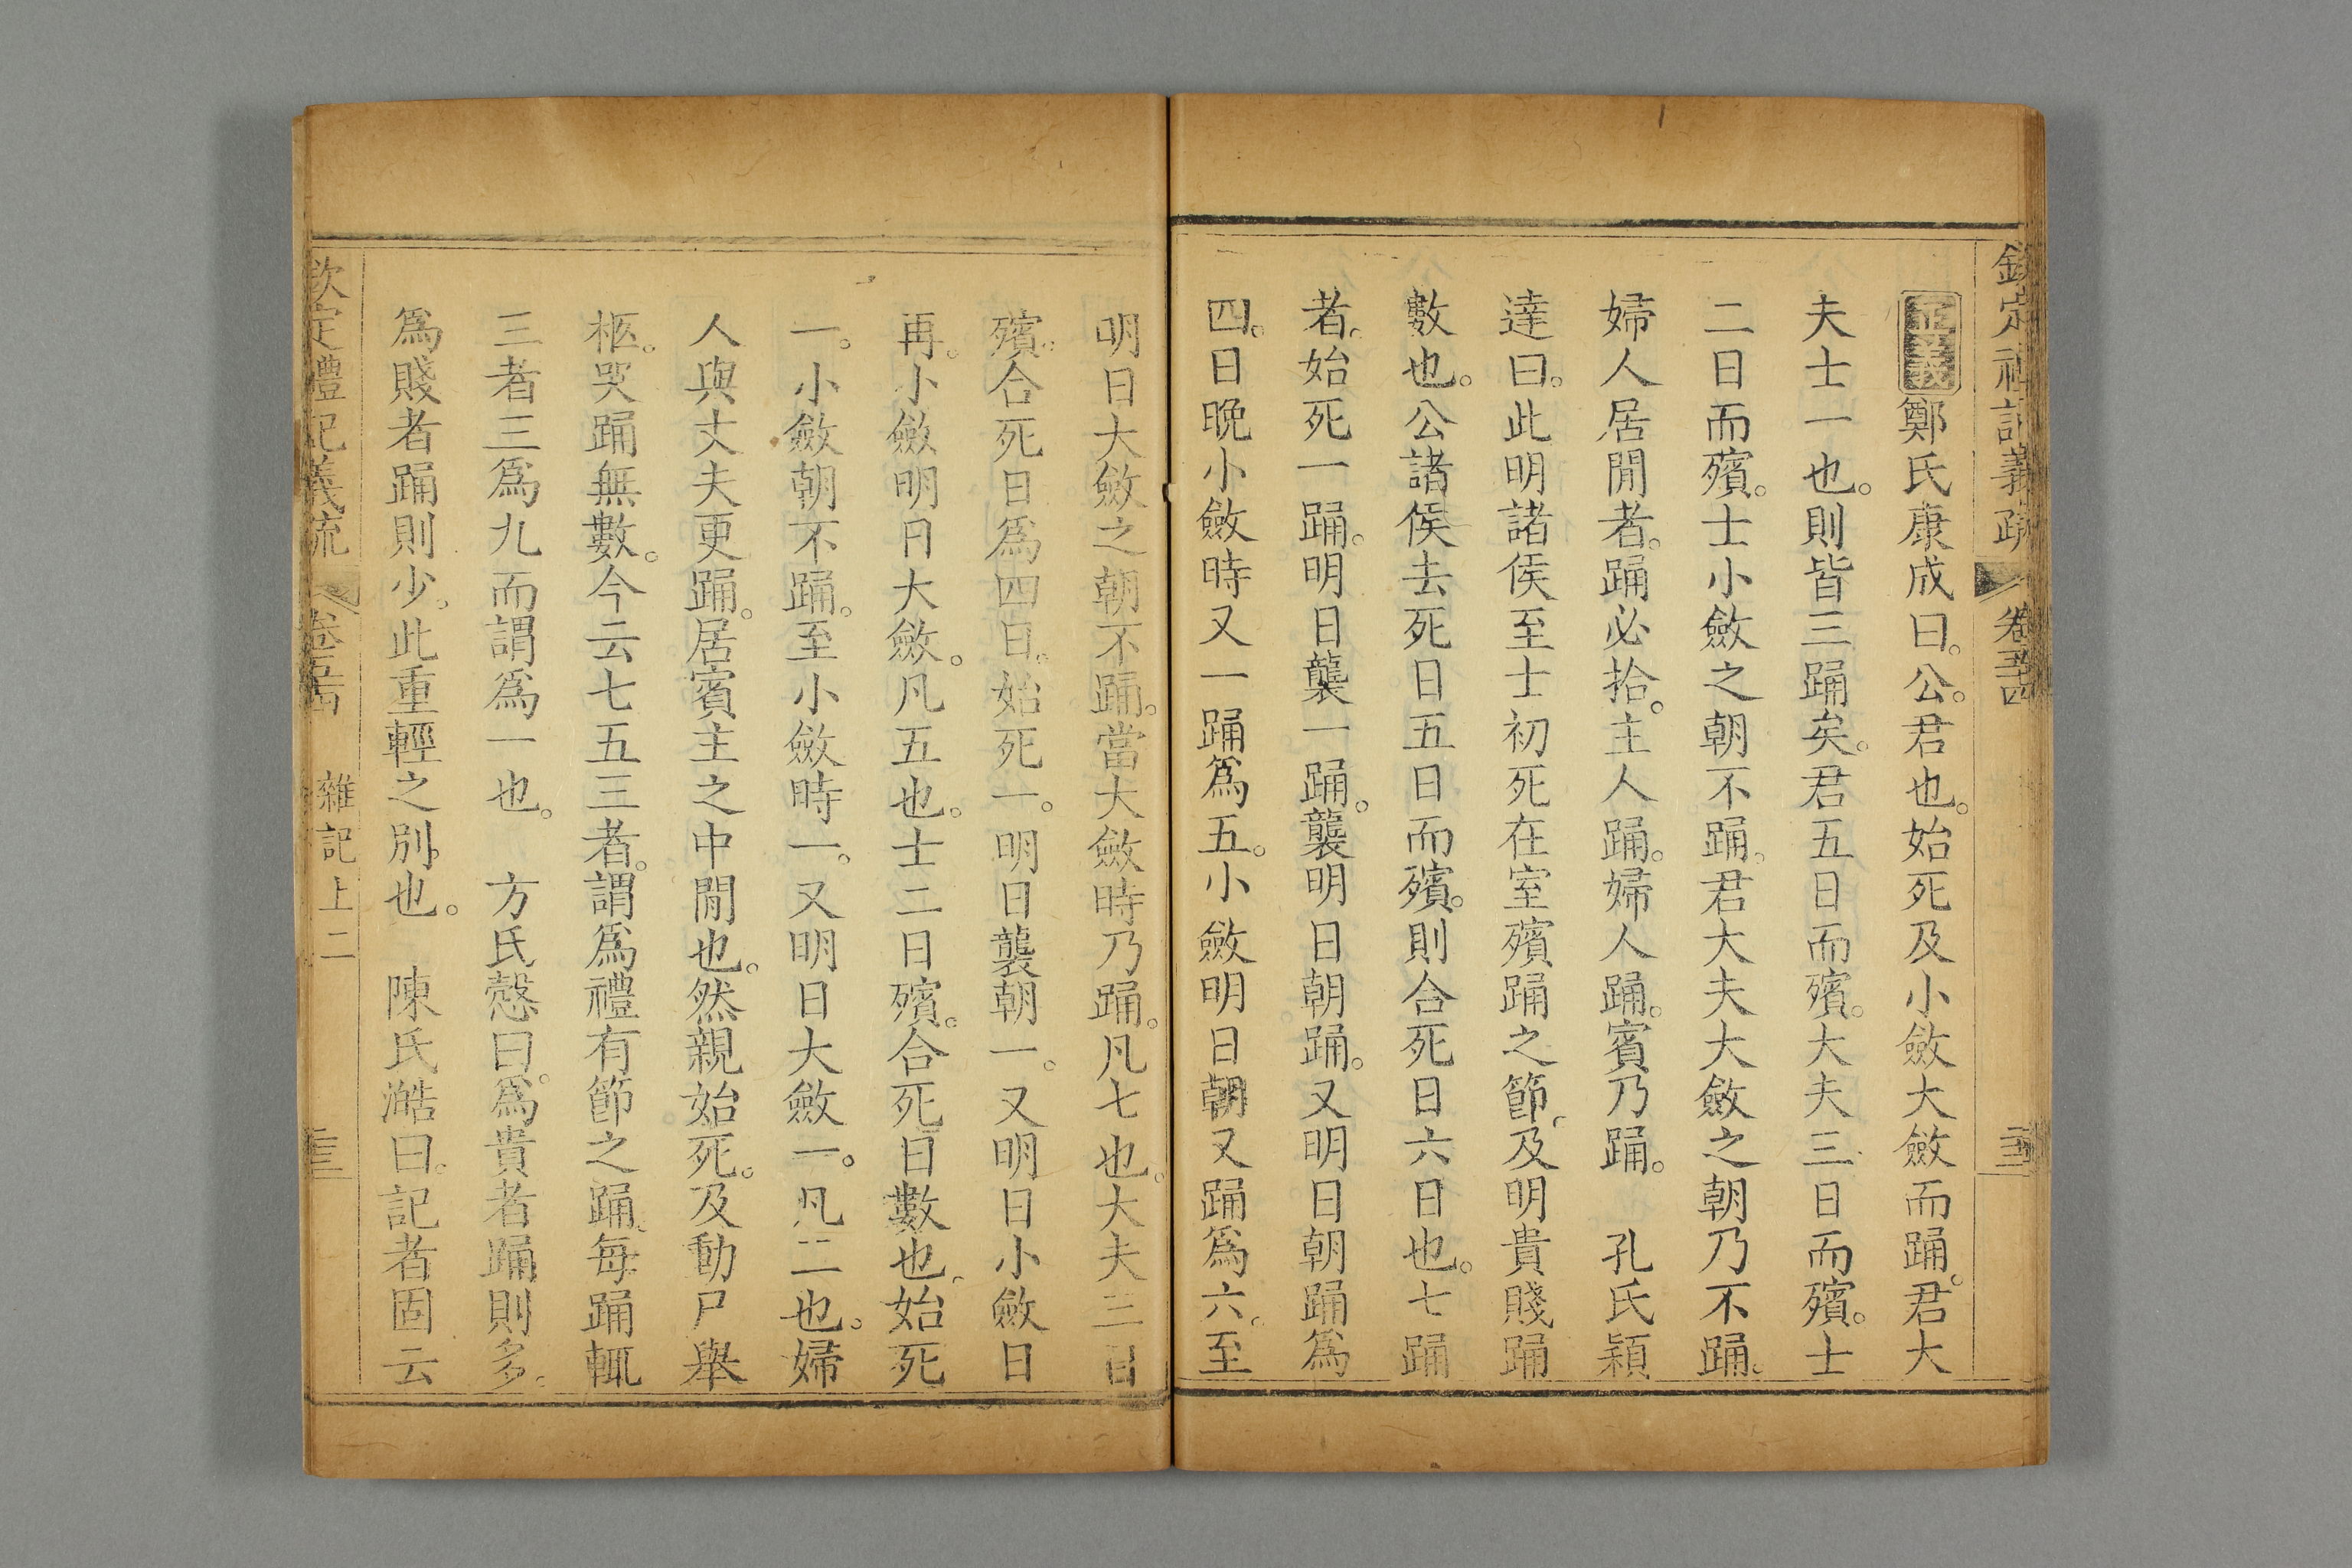 欽定禮記義疏 卷五十四
正義鄭氏康成曰。公。君也。始死及小斂大斂而踊。君大
夫士一也。則皆三踊矣。君五日而殯。大夫三日而殯。士
二日而殯。士小斂之朝不踊。君大夫大斂之朝乃不踊。
婦人居閒者。踊必拾。主人踊。婦人踊。賓乃踊。 孔氏穎
達曰。此明諸侯至士初死在室殯踊之節。及明貴賤踊
數也。公諸侯去死日五日而殯。則合死日六日也。七踊
者。始死一踊。明日襲一踊。襲明日朝踊。又明日朝踊爲
四。日晚小斂時又一踊爲五。小斂明日朝又踊爲六。至
明日大斂之朝不踊。當大斂時乃踊。凡七也。大夫三日
殯。合死日爲四日。始死一。明日襲朝一。又明日小斂日
再。小斂明日大斂。凡五也。士二日殯。合死日數也。始死
一。小斂朝不踊。至小斂時一。又明日大斂一。凡三也。婦
人與丈夫更踊。居賓主之中閒也。然親始死。及動尸舉
柩。哭踊無數。今云七五三者。謂爲禮有節之踊。每踊輒
三者三爲九而謂爲一也。 方氏慤曰。爲貴者踊則多。
爲賤者踊則少。此重輕之別也。 陳氏澔曰。記者固云
欽定禮記義疏 卷五十四 雜記上二